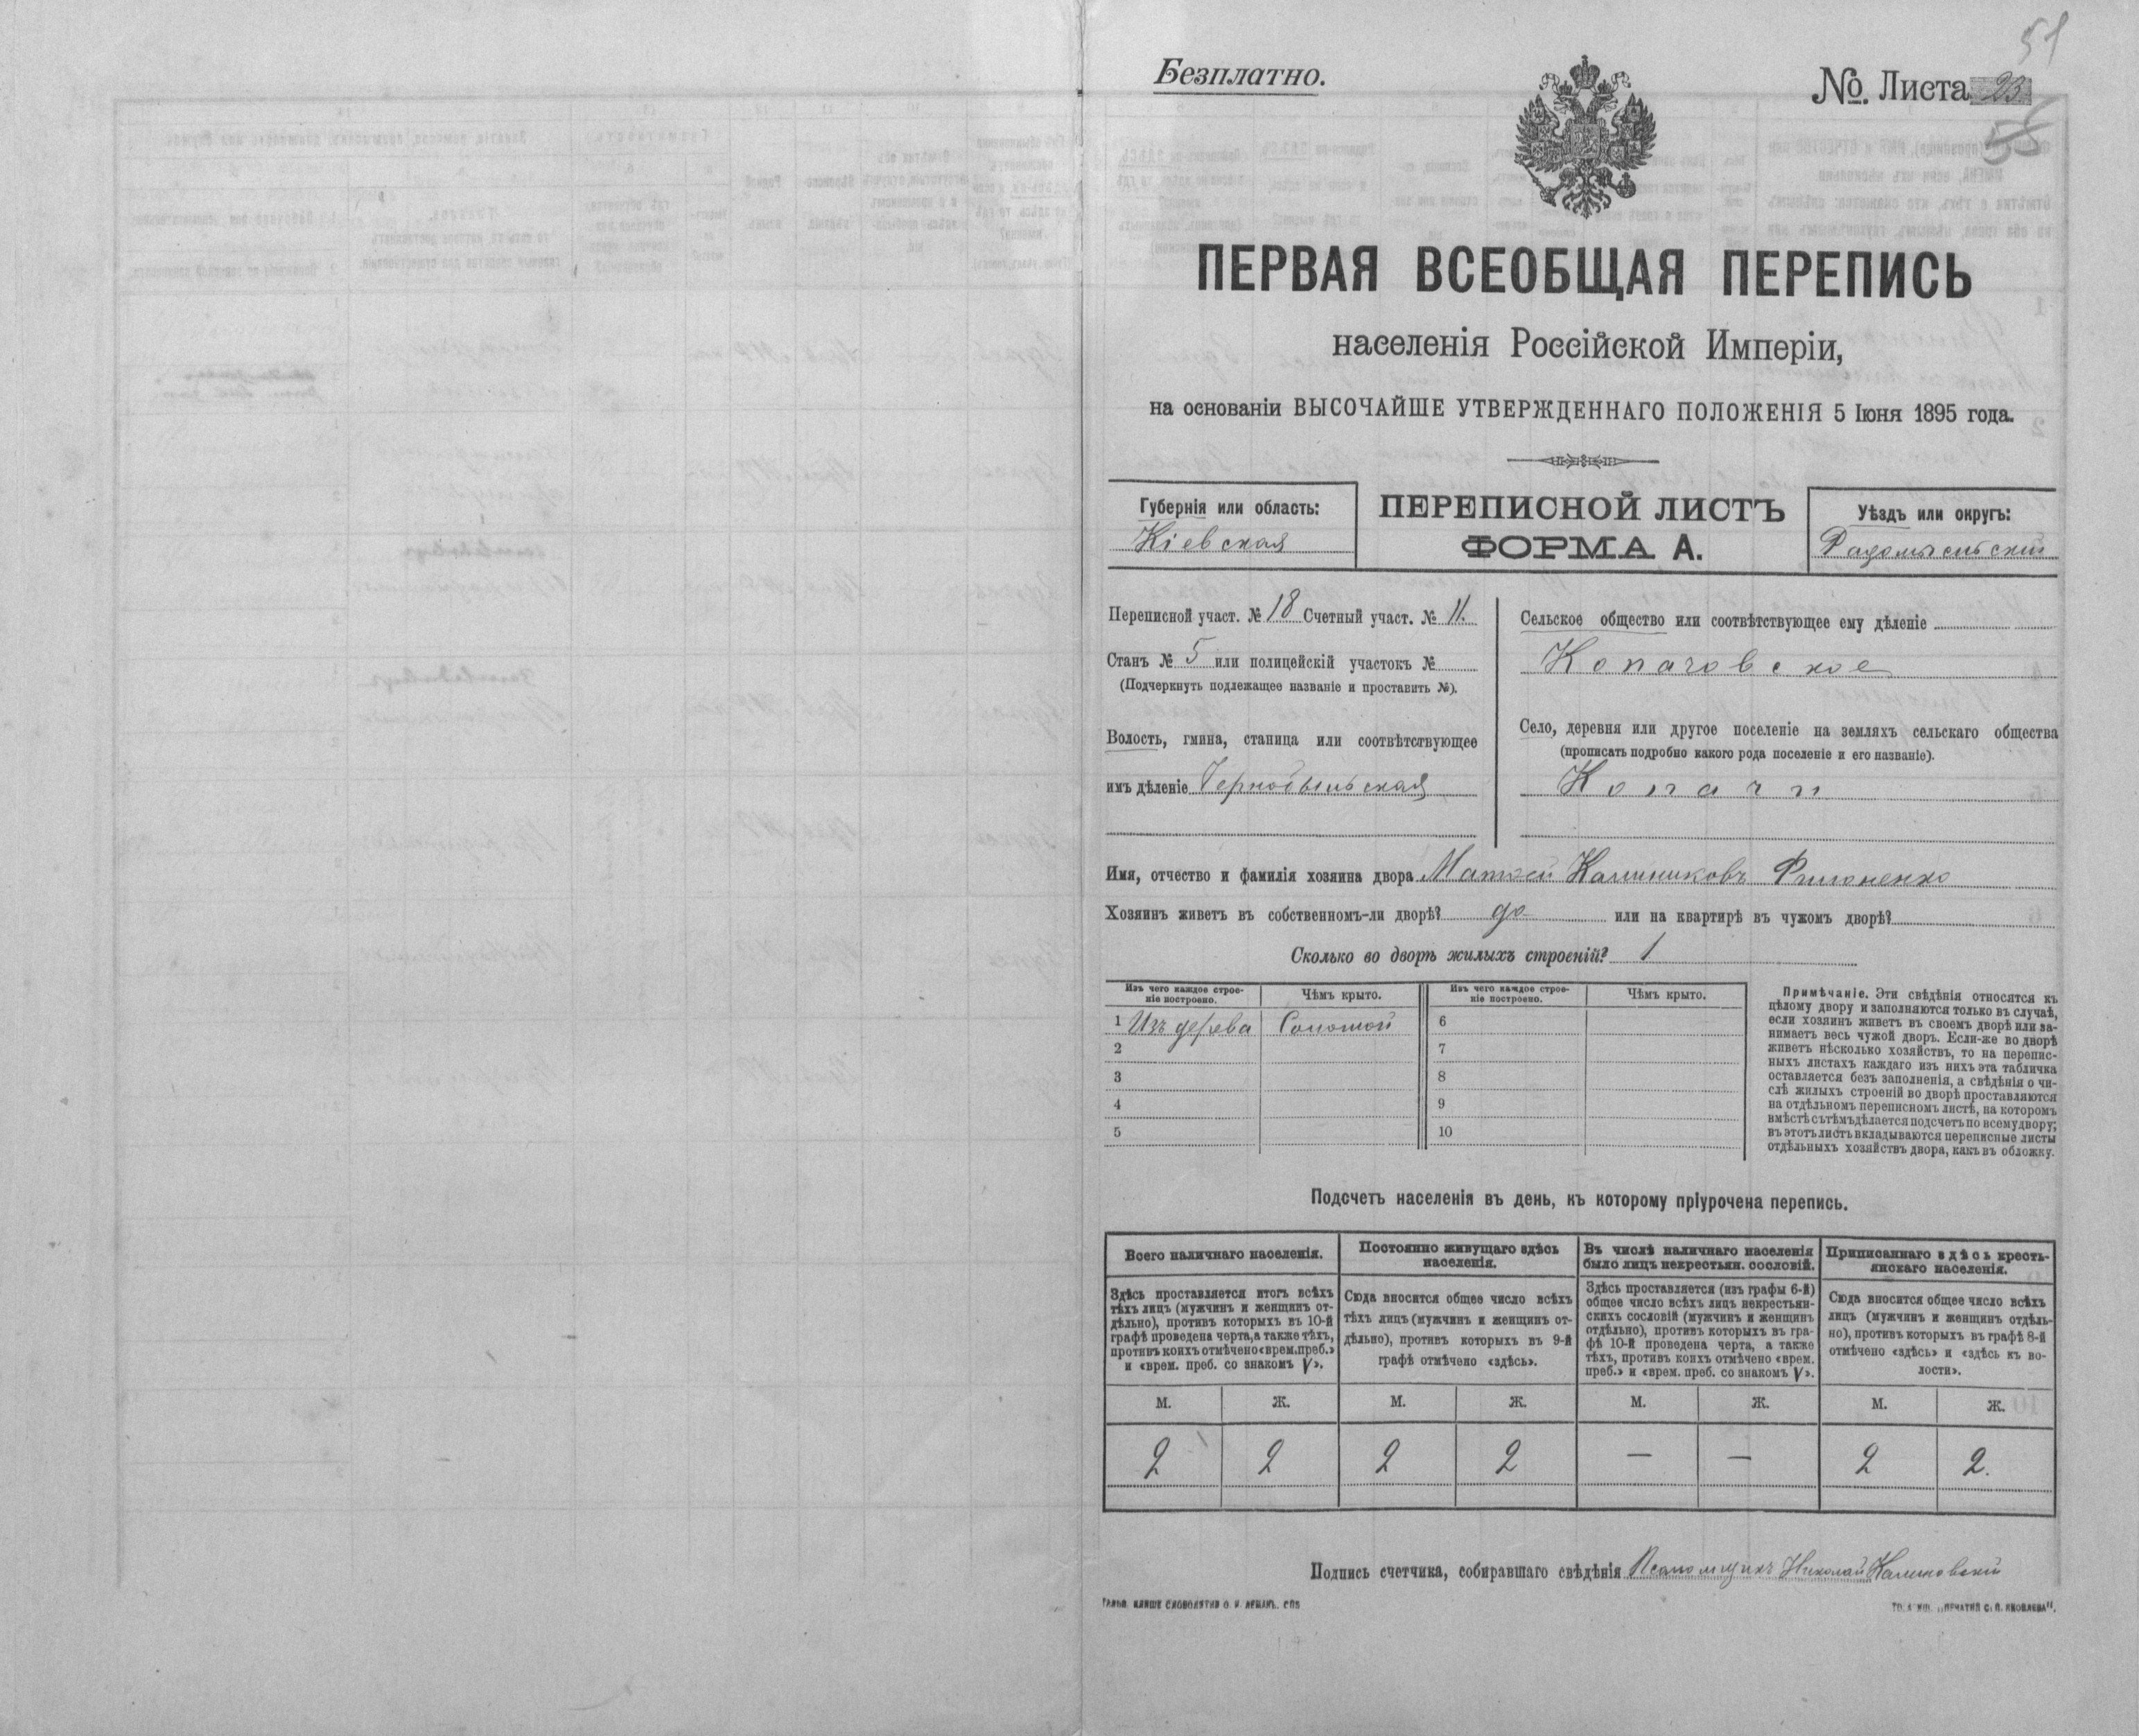 51
Безплатно.
№ Листа 23
ПЕРВАЯ ВСЕОБЩАЯ ПЕРЕПИСЬ
населенія Россійской Имперіи,
на основаніи ВЫСОЧАЙШЕ УТВЕРЖДЕННАГО ПОЛОЖЕНІЯ 5 Іюня 1895 года.
Губернія или область:
Кіевская
ПЕРЕПИСНОЙ ЛИСТЪ
ФОРМА А.
Уѣздъ или округъ:
Радомысльскій
Переписной участ. № 18 Счетный участ. № 11.
Станъ № 5 или полицейскій участокъ №
(Подчеркнуть подлежащее названіе и проставить №).
Волость, гмина, станица или соотвѣтствующее
имъ дѣленіе Чернобыльская
Сельское общество или соотвѣтствующее ему дѣленіе
Копачовское
Село, деревня или другое поселеніе на земляхъ сельскаго общества
(прописать подробно какого рода поселеніе и его названіе).
Копачи
Имя, отчество и фамилія хозяина двора Матвѣй Калиниковъ Филоненко
Хозяинъ живетъ въ собственномъ-ли дворѣ? да или на квартирѣ въ чужомъ дворѣ?
Сколько во дворѣ жилыхъ строеній? 1
Изъ чего каждое строе-
ніе построено.
Чѣмъ крыто.
Изъ чего каждое строе-
ніе построено.
Чѣмъ крыто.
1 Изъ дерева Соломой 6
2 7
3 8
4 9
5 10
Примѣчаніе. Эти свѣдѣнія относятся къ
цѣлому двору и заполняются только въ случаѣ,
если хозяинъ живетъ въ своемъ дворѣ или за-
нимаетъ весь чужой дворъ. Если-же во дворѣ
живетъ нѣсколько хозяйствъ, то на перепис-
ныхъ листахъ каждаго изъ нихъ эта табличка
оставляется безъ заполненія, а свѣдѣнія о чи-
слѣ жилыхъ строеній во дворѣ проставляются
на отдѣльномъ переписномъ листѣ, на которомъ
вмѣстѣ съ тѣмъ дѣлается подсчетъ по всему двору;
въ этотъ листъ вкладываются переписные листы
отдѣльныхъ хозяйствъ двора, какъ въ обложку.
Подсчетъ населенія въ день, къ которому пріурочена перепись.
Всего наличнаго населенія.
Здѣсь проставляется итогъ всѣхъ
тѣхъ лицъ (мужчинъ и женщинъ от-
дѣльно), противъ которыхъ въ 10-й
графѣ проведена черта, а также тѣхъ,
противъ коихъ отмѣчено «врем. преб.»
и «врем. преб. со знакомъ V».
Постоянно живущаго здѣсь
населенія.
Сюда вносится общее число всѣхъ
тѣхъ лицъ (мужчинъ и женщинъ от-
дѣльно), противъ которыхъ въ 9-й
графѣ отмѣчено «здѣсь».
Въ числѣ наличнаго населенія
было лицъ некрестьян. сословій.
Здѣсь проставляется (изъ графы 6-й)
общее число всѣхъ лицъ некрестьян-
скихъ сословій (мужчинъ и женщинъ
отдѣльно), противъ которыхъ въ гра-
фѣ 10-й проведена черта, а также
тѣхъ, противъ коихъ отмѣчено «врем.
преб.» и «врем. преб. со знакомъ V».
Приписаннаго здѣсь кресть-
янскаго населенія.
Сюда вносится общее число всѣхъ
лицъ (мужчинъ и женщинъ отдѣль-
но), противъ которыхъ въ графѣ 8-й
отмѣчено «здѣсь» и «здѣсь къ во-
лости».
М. Ж. М. Ж. М. Ж. М. Ж.
2 2 2 2 — — 2 2.
Подпись счетчика, собиравшаго свѣдѣнія Псаломщикъ Николай Калиновскій